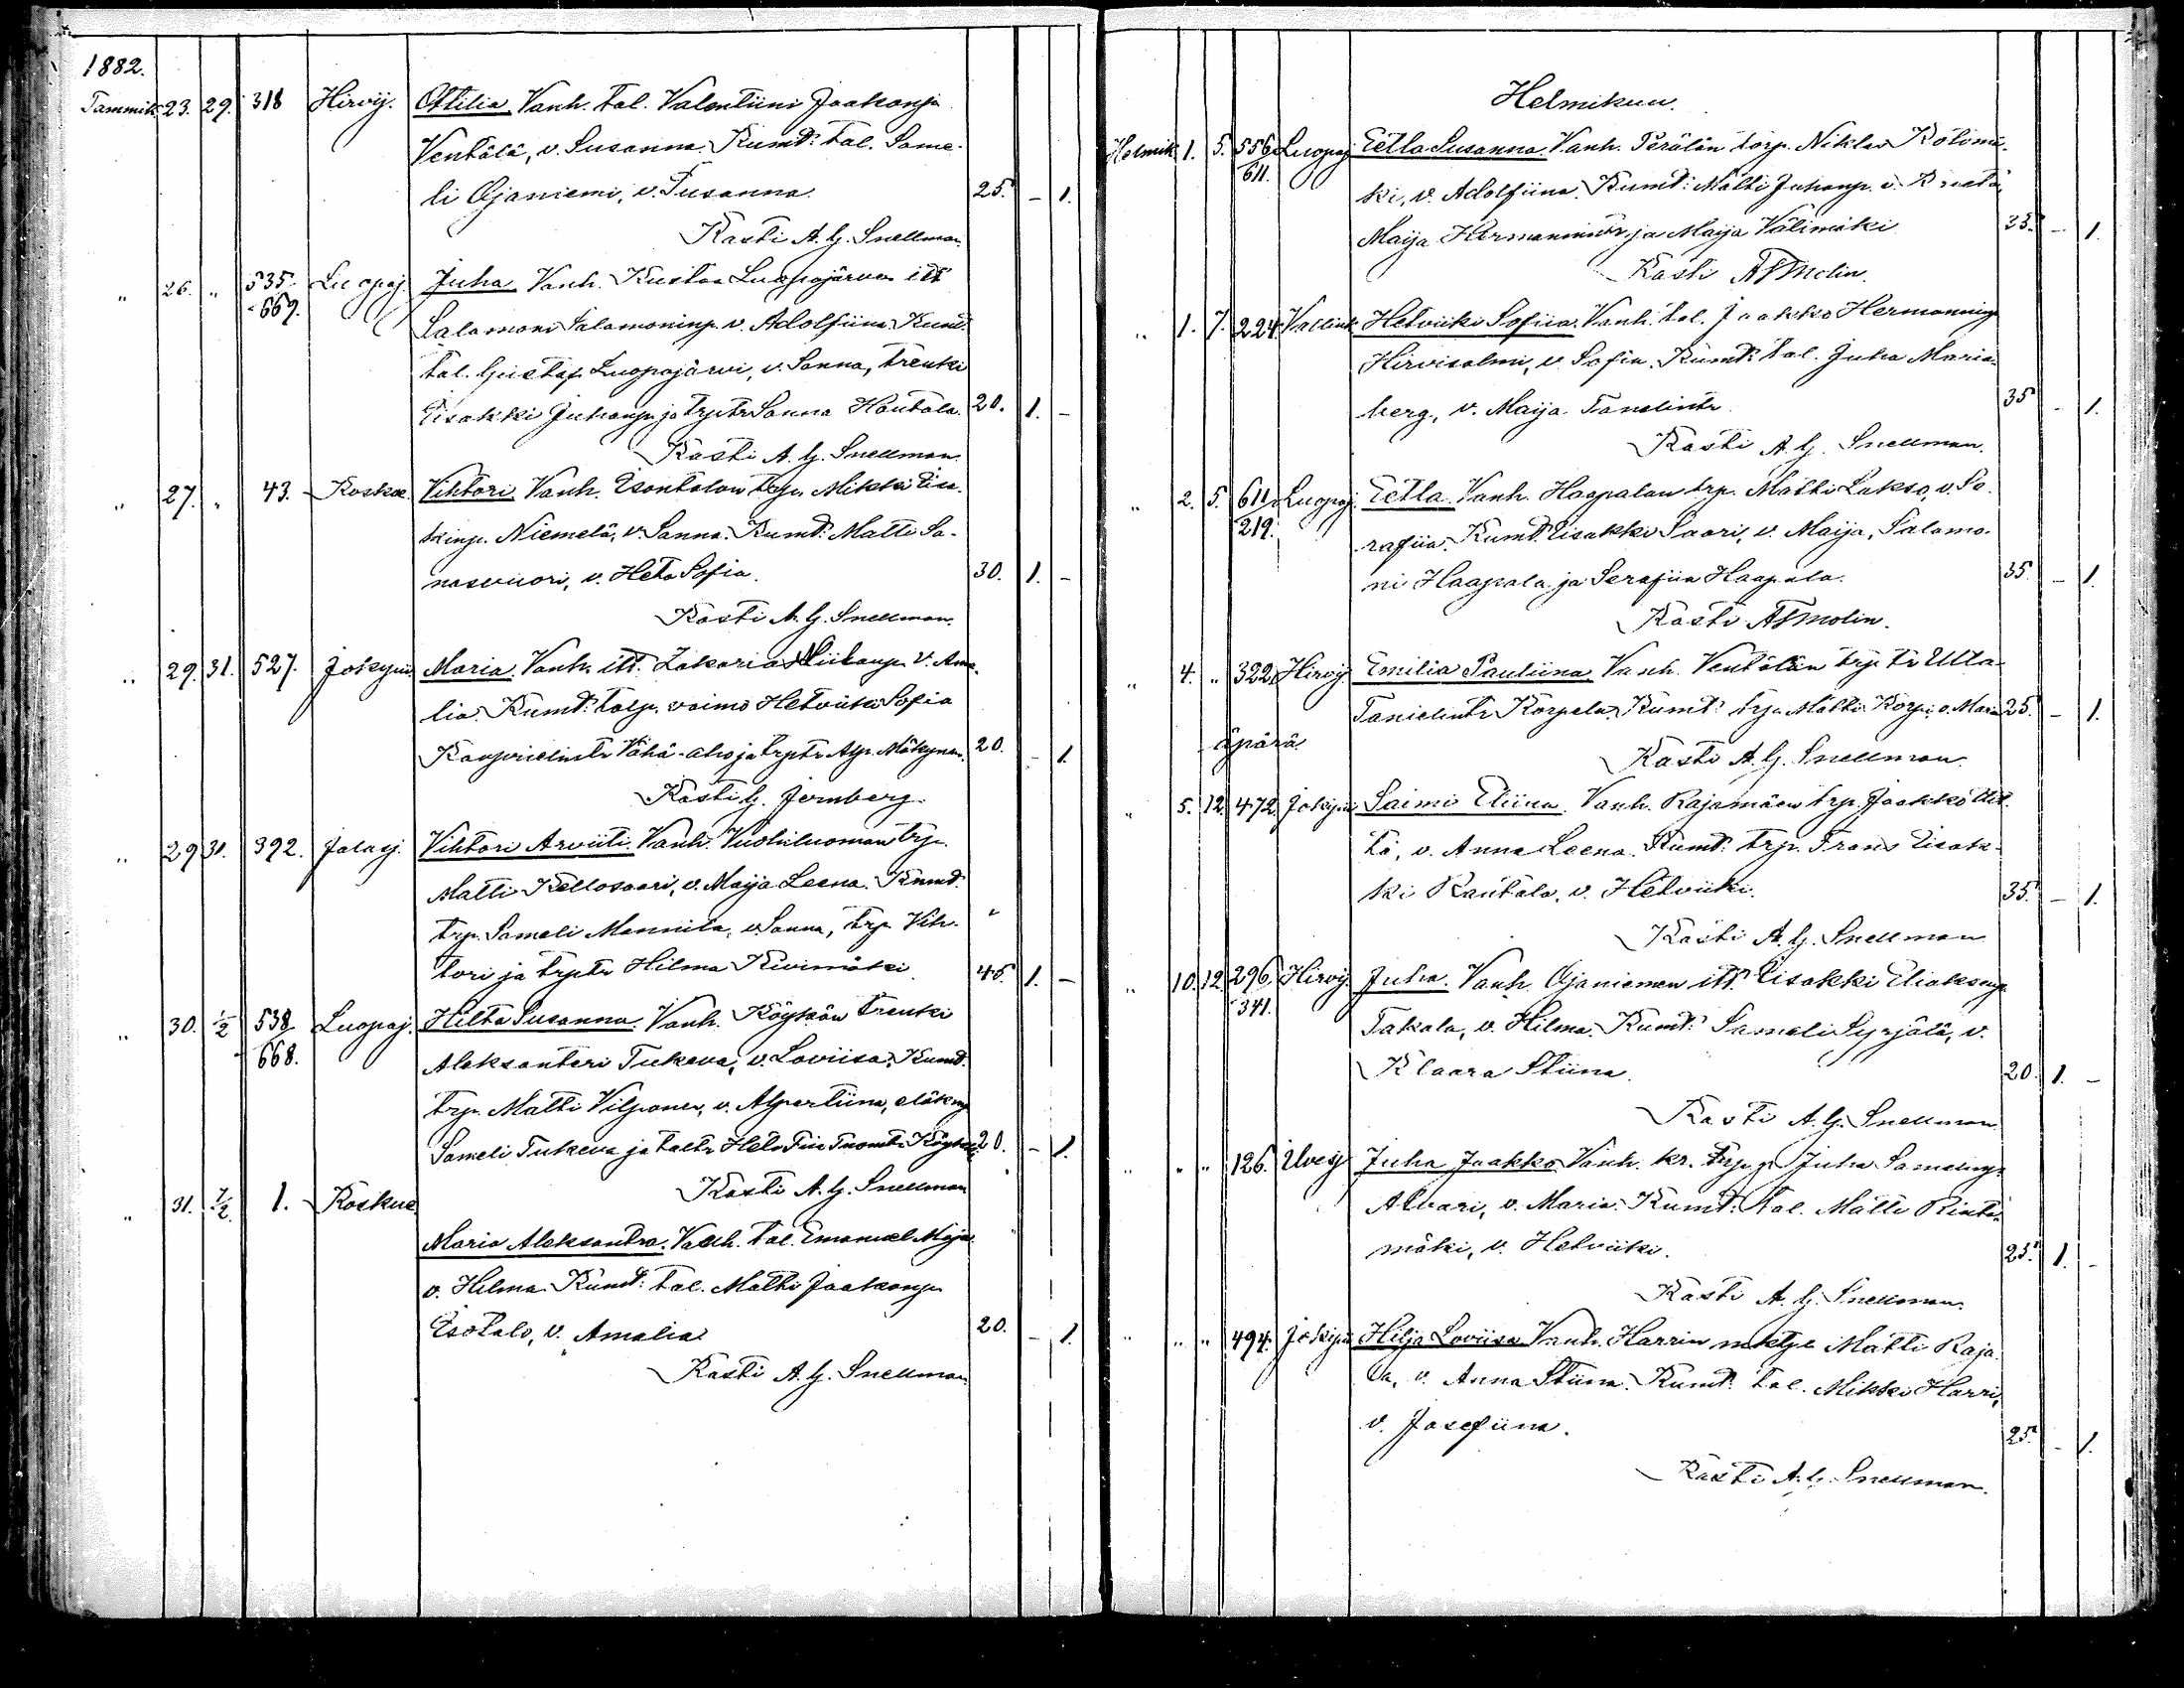 1882.
Tammik. 23. 29. 318 Hirvij. Otilia. Vanh. tal. Valentiini Jaakonp.
Ventälä, v. Susanna. Kumt: tal. Same-
li Ojaniemi, v. Susanna. 25. - 1.
Kasti A. G. Snellman.
" 26. " 535. Luopaj. Juha. Vanh. Kustaa Luopajärven itt
669.
Salamoni Salamoninp. v. Adolfiina. Kumt.
tal. Gustaf Luopajärvi, v. Sanna, trenki
Eisakki Juhanp. ja trptr Sanna Hautala. 20. 1. -
Kasti A. G. Snellman.
" 27. " 43. Koskue. Vihtori. Vanh. Esontalon trp. Mikki Eisa-
kinp. Niemelä, v. Sanna. Kumt: Matti Sa-
nasvuori, v. Heta Sofia. 30. 1. -
Kasti A. G. Snellman.
" 29. 31. 527. Jokipii. Maria. Vanh. itt. Zakarias v. Ama-
lia. Kumt: talp. vaimo Hetviiki Sofia
Kaaprielintr Vähä-aho ja trptr Alp. Mäkynen. 20. - 1.
Kasti G. Jernberg.
" 29 31. 392. Jalasj. Vihtori Arviiti. Vanh. Vuohiluoman trp.
Matti Kellosaari, v. Maija Leena. Kumt.
trp. Sameli Mannila, v. Sanna, trp. Vih-
tori ja trptr Hilma Kivimäki. 45. 1. -
" 30. 1/2 538 Luopaj. Hilta Susanna. Vanh. Köykän trenki
668.
Aleksanteri Tukeva, v. Loviisa. Kumt.
trp. Matti Vilponen, v. Alpertiina,
Sameli Tukeva ja taltr Heta Fiia Tuomtr 20. - 1.
Kasti A. G. Snellman
" 31. 7/2. 1. Koskue.
Maria Aleksandra. Vanh. tal. Emanuel Maja
v. Hilma. Kumt: tal. Matti Jaakonp.
Esotalo, v. Amalia. 20. - 1.
Kasti A. G. Snellman
Helmikuu.
Helmik 1. 5. 556 Luopaj Eetla Susanna. Vanh. Perälän torp. Niklas Kotimä-
611.
ki, v. Adolfiina. Kumt: Matti Juhanp. v.
Maija Hermannintr ja Maija Välimäki 35. - 1.
Kasti Molin.
" 1. 7. 224. Vallink Hetviiki Sofiia. Vanh. tal. Jaakko Hermanninp
Hirvisalmi, v. Sofia. Kumt: tal. Juha Maria-
berg, v. Maija Tanelintr 35 - 1.
Kasti A. G. Snellman.
" 2. 5. 611 Luopaj. Eetla. Vanh. Haapalan trp. Matti Lakso, v. Se-
219.
rafiia. Kumt. Eisakki Saari, v. Maija, Salamo-
ni Haapala ja Serafiia Haapala. 35. - 1.
Kasti Molin.
" 4. " 322. Hirvij. Emilia Pauliina. Vanh. Ventälän trp. tr Ulla
Tanielintr Korpela. Kumt: trp. Matti Korpi, v. Maria 25. - 1.
äpärä
Kasti A. G. Snellman.
" 5. 12. 472. Jokipii Saimi Eliina. Vanh. Rajamäen trp. Jaakko
tä, v. Anna Leena. Kumt: trp. Frans Eisak-
ki Rantala, v. Hetviiki. 35. - 1.
Kasti A. G. Snellman
" 10. 12. 296. Hirvij. Juha. Vanh. Ojaniemen itt. Eisakki Eliaksenp
341.
Takala, v. Hilma. Kumt: Sameli Syrjälä, v.
Klaara Stiina. 20. 1. -
Kasti A. G. Snellman
" " " 126. Ilvesj Juha Jaakko. Vanh. kr. trp. p. Juha Samelinp
Alvari, v. Maria. Kumt: tal. Matti Rinta-
mäki, v. Hetviiki. 25. 1. -
Kasti A. G. Snellman.
" " " 494. Jokipii Hilja Loviisa. Vanh. Harrin mktp. Matti Raja-
la, v. Anna Stiina. Kumt: tal. Mikki Harri,
v. Josefiina. 25. - 1.
Kasti A. G. Snellman.